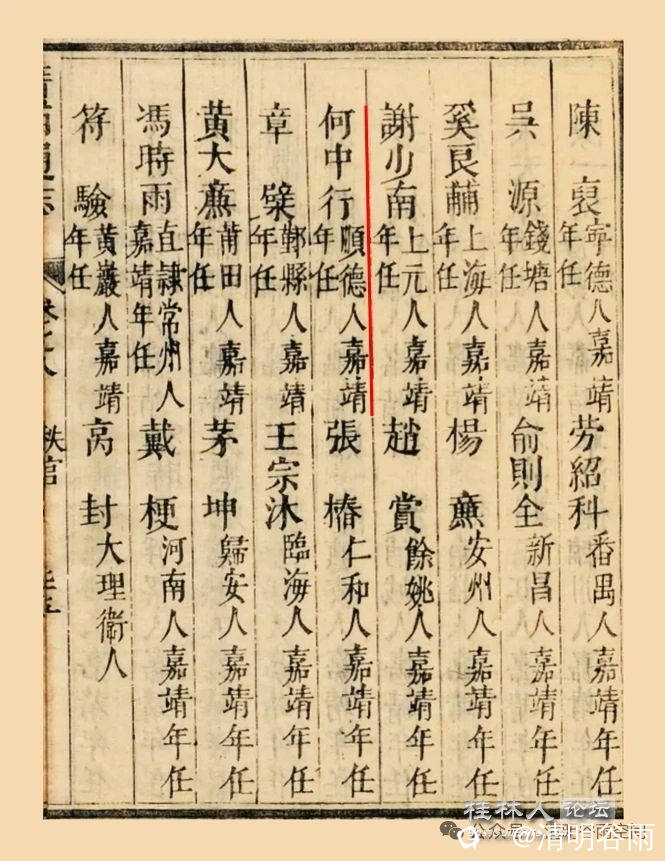 陳 寧德人嘉靖年任 勞紹科 番禺人嘉靖年任
吳源 錢塘人嘉靖年任 俞則全 新昌人嘉靖年任
奚良輔 上海人嘉靖年任 楊廉 安州人嘉靖年任
謝少南 上元人嘉靖年任 趙賞 餘姚人嘉靖年任
何中行 順德人嘉靖年任 張椿 仁和人嘉靖年任
章檗 鄞縣人嘉靖年任 王宗沐 臨海人嘉靖年任
黃大廉 莆田人嘉靖年任 茅坤 歸安人嘉靖年任
馮時雨 直隸常州人嘉靖年任 戴梗 河南人嘉靖年任
符驗 黃巖人嘉靖年任 高封 大理衛人
通志 秩官
桂林人论坛
公众号
@清明谷雨